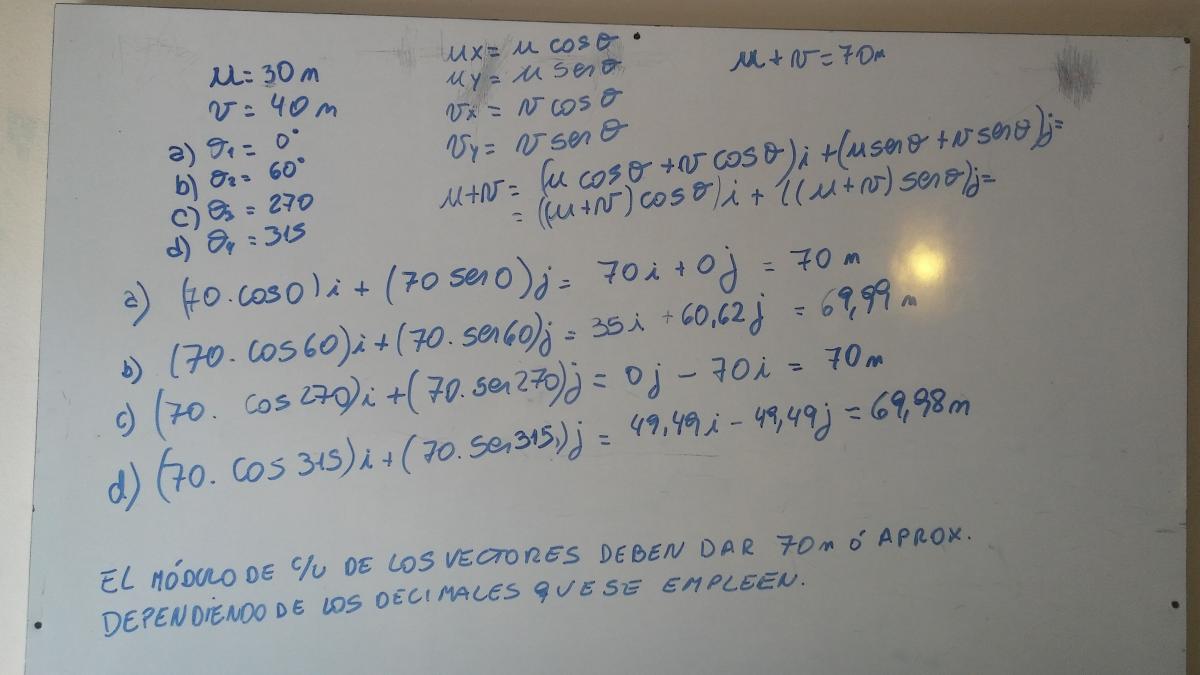 u = 30 m
v = 40 m
a) θ1 = 0°
b) θ2 = 60°
c) θ3 = 270
d) θ4 = 315
ux = u cos θ
uy = u sen θ
vx = v cos θ
vy = v sen θ
u+v = (u cos θ + v cos θ)i + (u sen θ + v sen θ)j =
= ((u+v) cos θ)i + ((u+v) sen θ)j =
u + v = 70m
a) (70.cos0)i + (70 sen0)j = 70i + 0j = 70 m
b) (70. cos60)i + (70. sen60)j = 35i + 60,62j = 69,99 m
c) (70. cos270)i + (70.sen270)j = 0j - 70i = 70m
d) (70. cos 315)i + (70. sen315,)j = 49,49i - 49,49j = 69,98m
EL MÓDULO DE C/U DE LOS VECTORES DEBEN DAR 70m ó APROX.
DEPENDIENDO DE LOS DECIMALES QUE SE EMPLEEN.